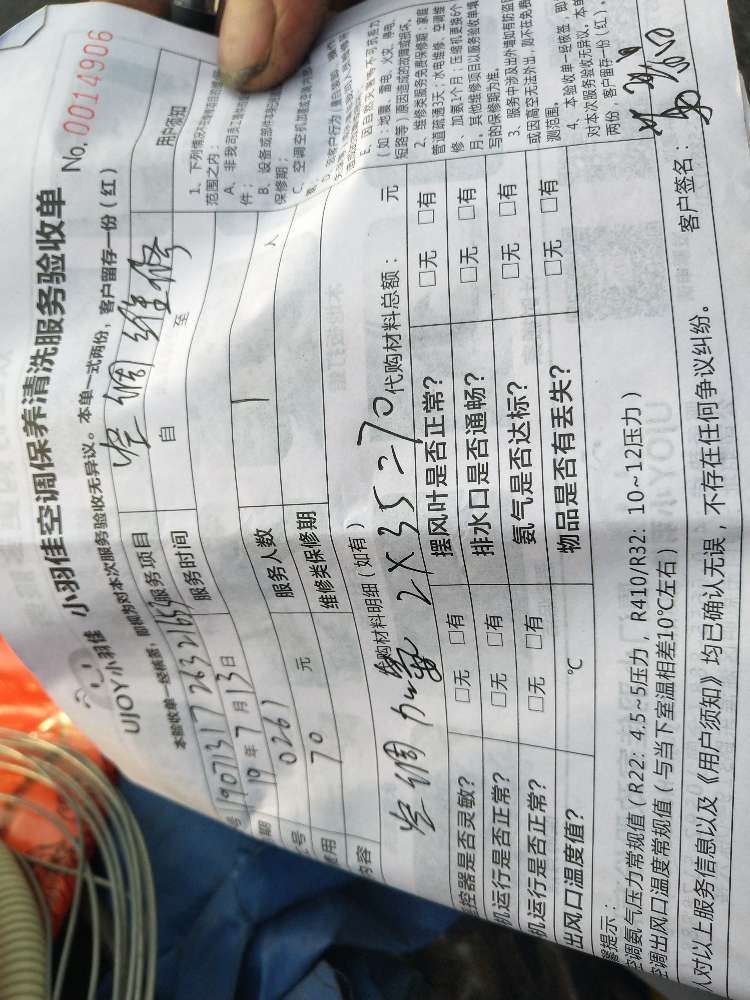 小羽佳空调保养清洗服务验收单
No. 0014906
UJOY小羽佳
本验收单一经核签，即视为对本次服务验收无异议。本单一式两份，客户留存一份（红）
服务项目 空调维修
用户须知
1907131726321654
服务时间 自 至
19年7月13日
0261
服务人数 1 人
70 元
维修类保修期
代购材料明细（如有） 代购材料总额： 元
内容
空调加氟 2×35=70
控器是否灵敏? □无 □有 摆风叶是否正常? □无 □有
机运行是否正常? □无 □有 排水口是否通畅? □无 □有
机运行是否正常? □无 □有 氨气是否达标? □无 □有
出风口温度值? ℃ 物品是否有丢失? □无 □有
1、下列情况
范围之内：
A、非我司
件；
B、设备或部件
保修期；
C、空调空机加
E、因自然灾害等不可抗能力
（如：地震、雷电、火灾、停电、
短路等）原因造成的故障或损坏。
2、维修类服务免费保修期：家庭
管道疏通3天；水电维修、空调维
修、加氨1个月；压缩机更换6个
月。其他维修项目以服务验收单填
写的保修期为准。
3、服务中涉及出外墙如有防盗网
或因高空无法外出，则不在免费
测范围。
4、本验收单一经核签，即
对本次服务验收无异议。本单
两份，客户留存一份（红）。
提示：
空调氨气压力常规值（R22: 4.5~5压力，R410/R32: 10~12压力）
空调出风口温度常规值（与当下室温相差10℃左右）
人对以上服务信息以及《用户须知》均已确认无误，不存在任何争议纠纷。
客户签名：